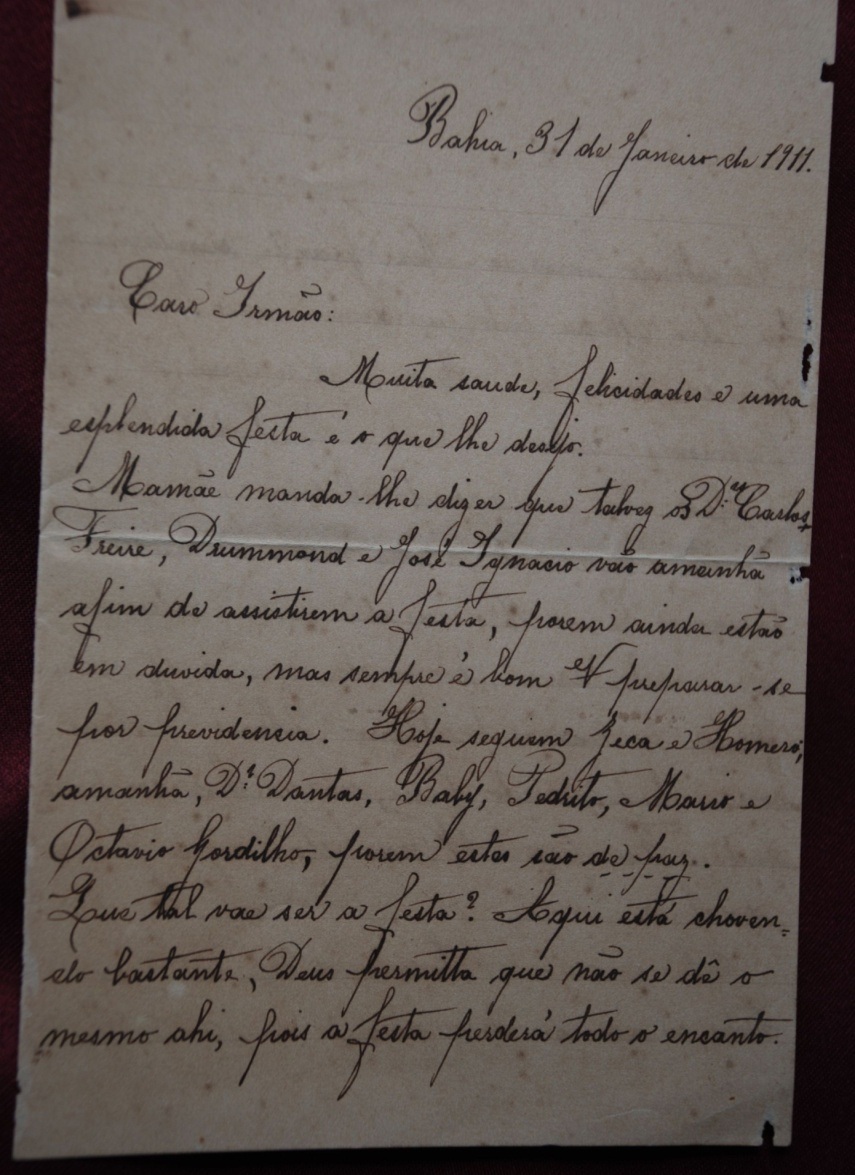 Bahia, 31 de Janeiro de 1911.
Caro Irmão:
Muita saude, felicidades e uma
esplendida festa é o que lhe desejo.
Mamãe manda-lhe dizer que talvez os Drs Carlos
Freire, Drummond e José Ignacio vão amanhã
afim de assistirem a festa, porem ainda estão
em duvida, mas sempre é bom V preparar-se
por previdencia. Hoje seguem Zeca e Homero,
amanhã, Dr. Dantas, Baby, Pedrito, Mario e
Octavio Gordilho, porem estes são de paz.
Que tal vae ser a festa? Aqui está choven=
do bastante, Deus permitta que não se dê o
mesmo ahi, pois a festa perderá todo o encanto.